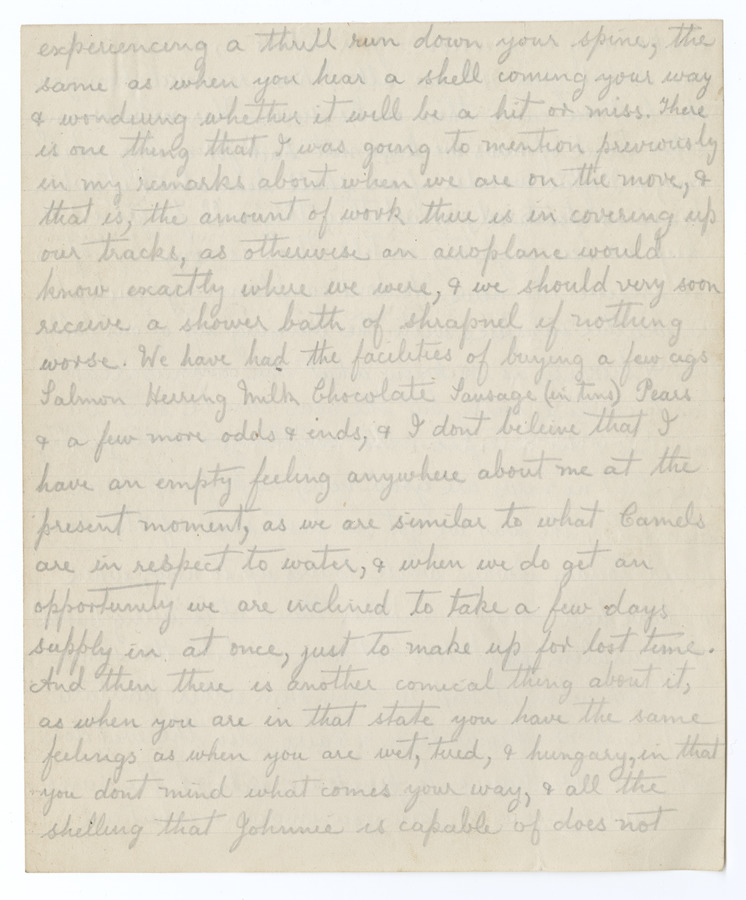 experiencing a thrill run down your spine, the
same as when you hear a shell coming your way
& wondering whether it will be a hit or miss. There
is one thing that I was going to mention previously
in my remarks about when we are on the move, &
that is, the amount of work there is in covering up
our tracks, as otherwise an aeroplane would
know exactly where we were, & we should very soon
receive a shower bath of shrapnel if nothing
worse. We have had the facilities of buying a few
Salmon Herring Milk Chocolate Sausage (in tins) Pears
& a few more odds & ends, & I dont believe that I
have an empty feeling anywhere about me at the
present moment, as we are similar to what Camels
are in respect to water, & when we do get an
opportunity we are inclined to take a few days
supply in at once, just to make up for lost time.
And then there is another comical thing about it,
as when you are in that state you have the same
feelings as when you are wet, tired, & hungary, in that
you dont mind what comes your way, & all the
shelling that Johnnie is capable of does not